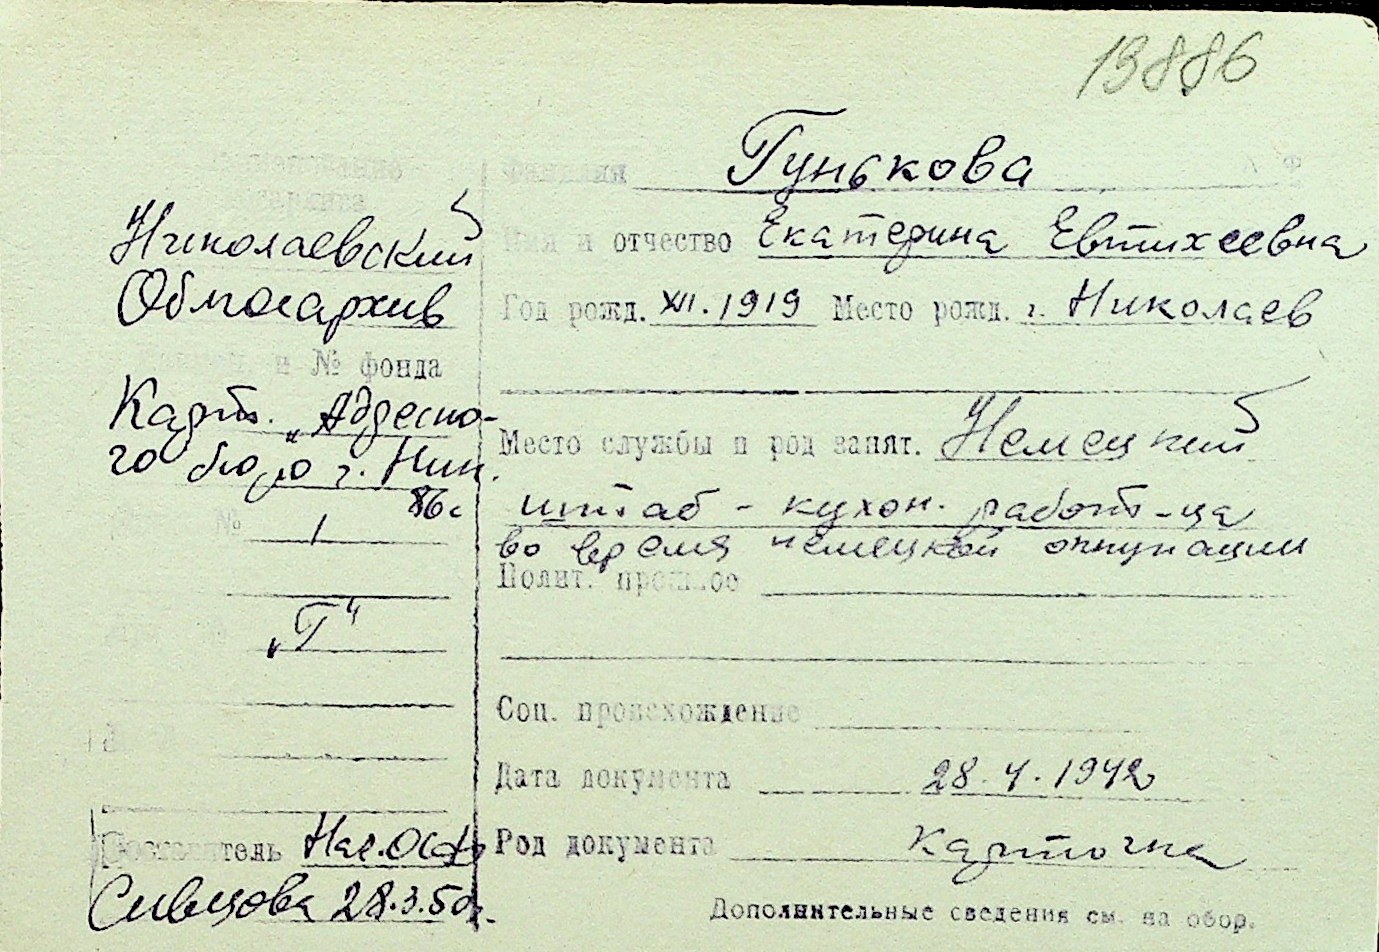 19886
Наименование
архива
Николаевский
Облгосархив
и № фонда
Карт. „Адресно-
го бюро г. Ник.
86с
№ 1
„Г"
Составитель Нач.
Сивцова 28.3.50г.
Фамилия Гунькова
Имя и отчество Екатерина Евтихеевна
Год рожд. XII.1919 Место рожд. г. Николаев
Место службы и род занят. Немецкий
штаб - кухон. работ-ца
во время немецкой оккупации
Полит. прошлое
Соц. происхождение
Дата документа 28.4.1942
Род документа Карточка
Дополнительные сведения см. на обор.